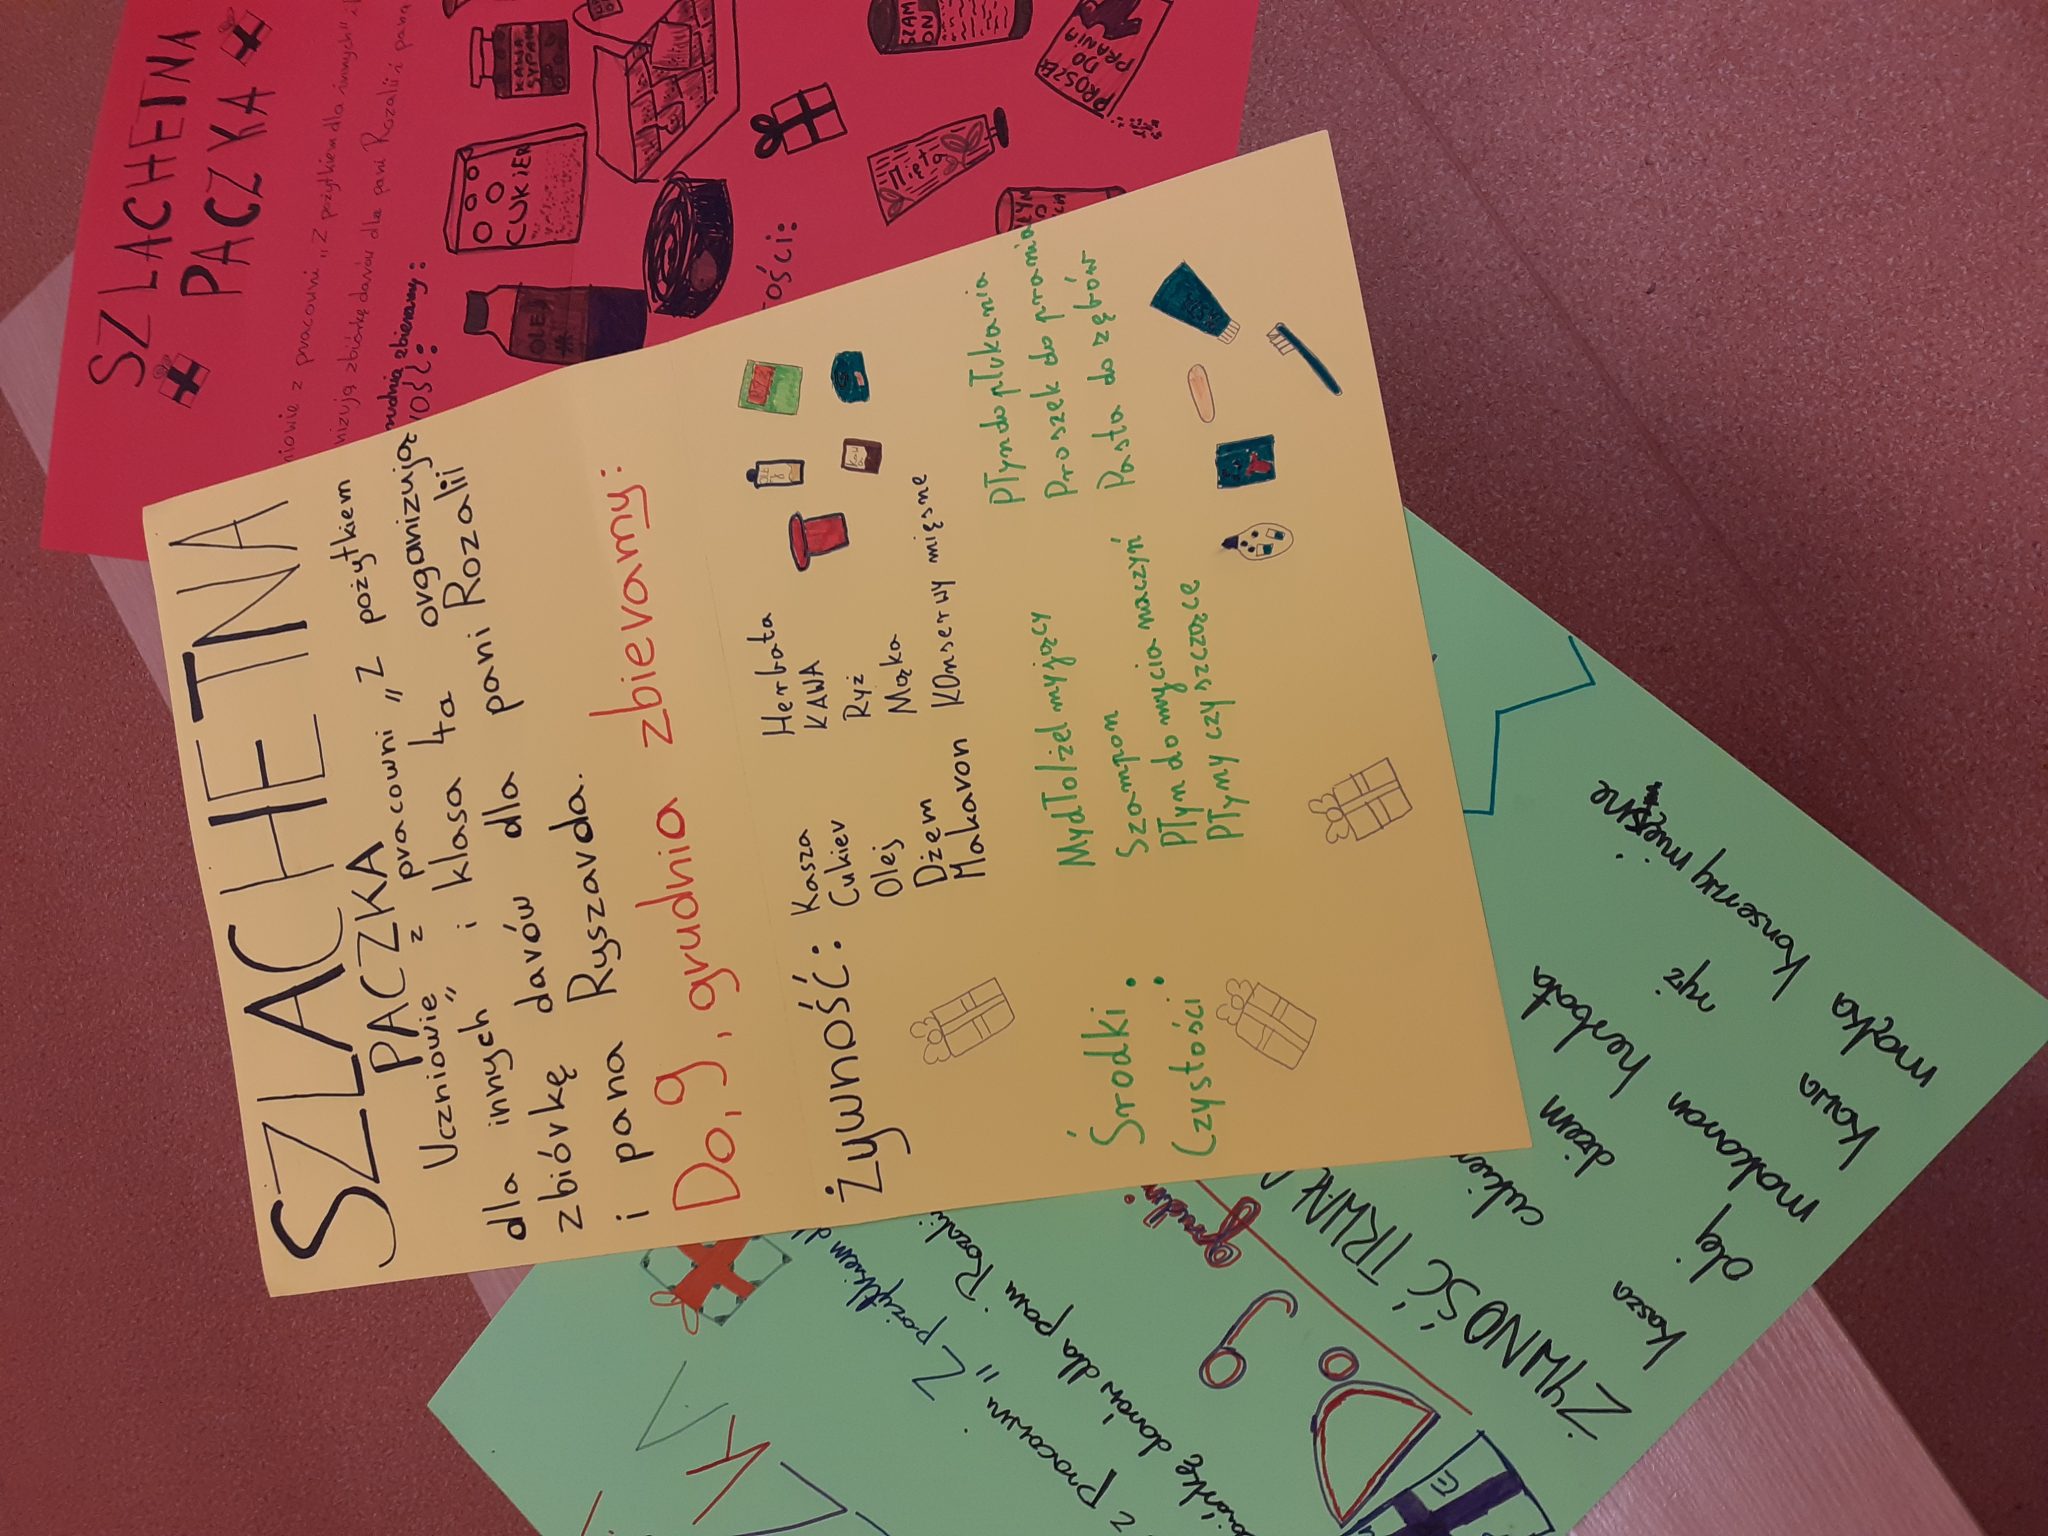 SZLACHETNA
PACZKA
Uczniowie z pracowni „Z pożytkiem
dla innych" i klasa 4a organizują
zbiórkę darów dla pani Rozalii
i pana Ryszarda.
Do, 9, grudnia zbieramy:
Żywność: Kasza Herbata
Cukier KAWA
Olej Ryż
Dżem Mąka
Makaron KOnserwy mięsne
Środki czystości:
Mydło/żel myjący
Szampon
Płyn do mycia naczyń
Płyny czyszczące
Płyn do płukania
Proszek do prania
Pasta do zębów
SZLACHETNA
PACZKA
z pracowni „Z pożytkiem dla innych"
zbiórkę darów dla pani Rozalii i pana
zbieramy:
OLEJ
CUKIER
KAWA
SYPANA
SZAM
PON
PROSZEK
DO
PRANIA
ości:
KA
z pracowni „Z pożytkiem
darów dla pani Rozalii
Do 9
ŻYWNOŚĆ TRWAŁA
kasza cukier
olej dżem
makaron herbata ryż
kawa
mąka konserwy mięsne